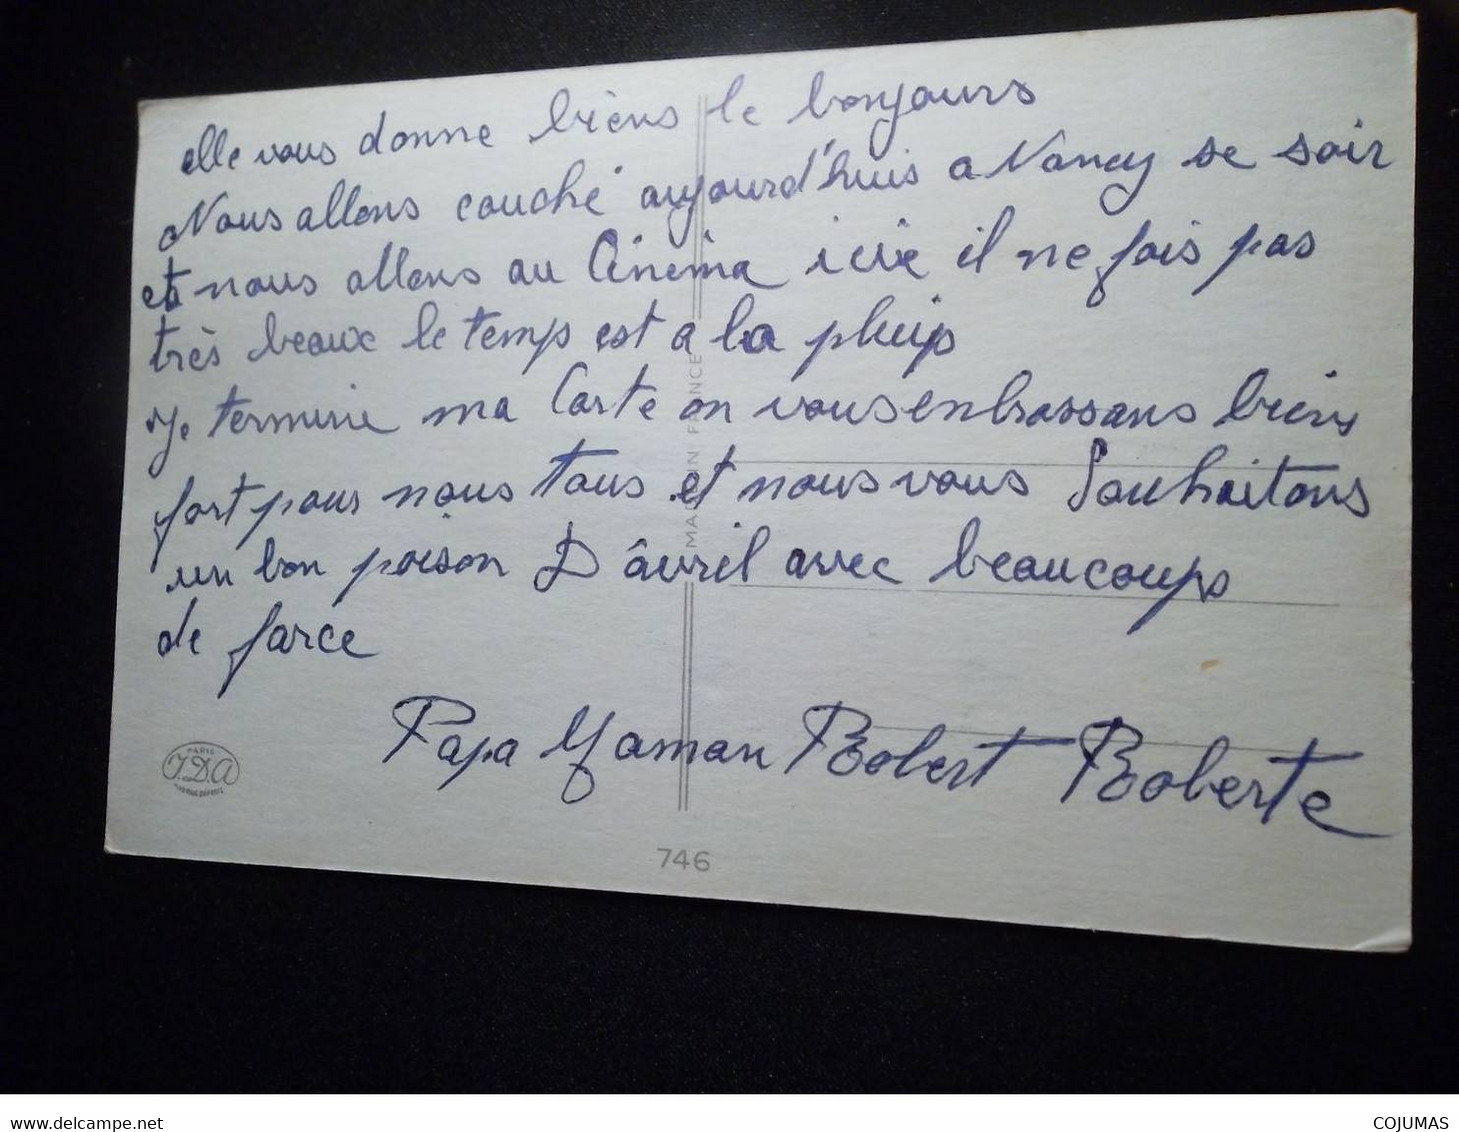 elle vous donne biens le bonjours
Nous allons couché aujourd'huis a Nancy se soir
et nous allons au Cinéma icie il ne fais pas
très beaux le temps est a la pluip
Je termine ma Carte on vous enbrassans biens
fort pour nous tous et nous vous Souhaitons
un bon poison D'âvril avec beaucoups
de farce
Papa Maman Robert Roberte
MADE IN FRANCE
PARIS
J.D.A
746
delcampe.net
COJUMAS